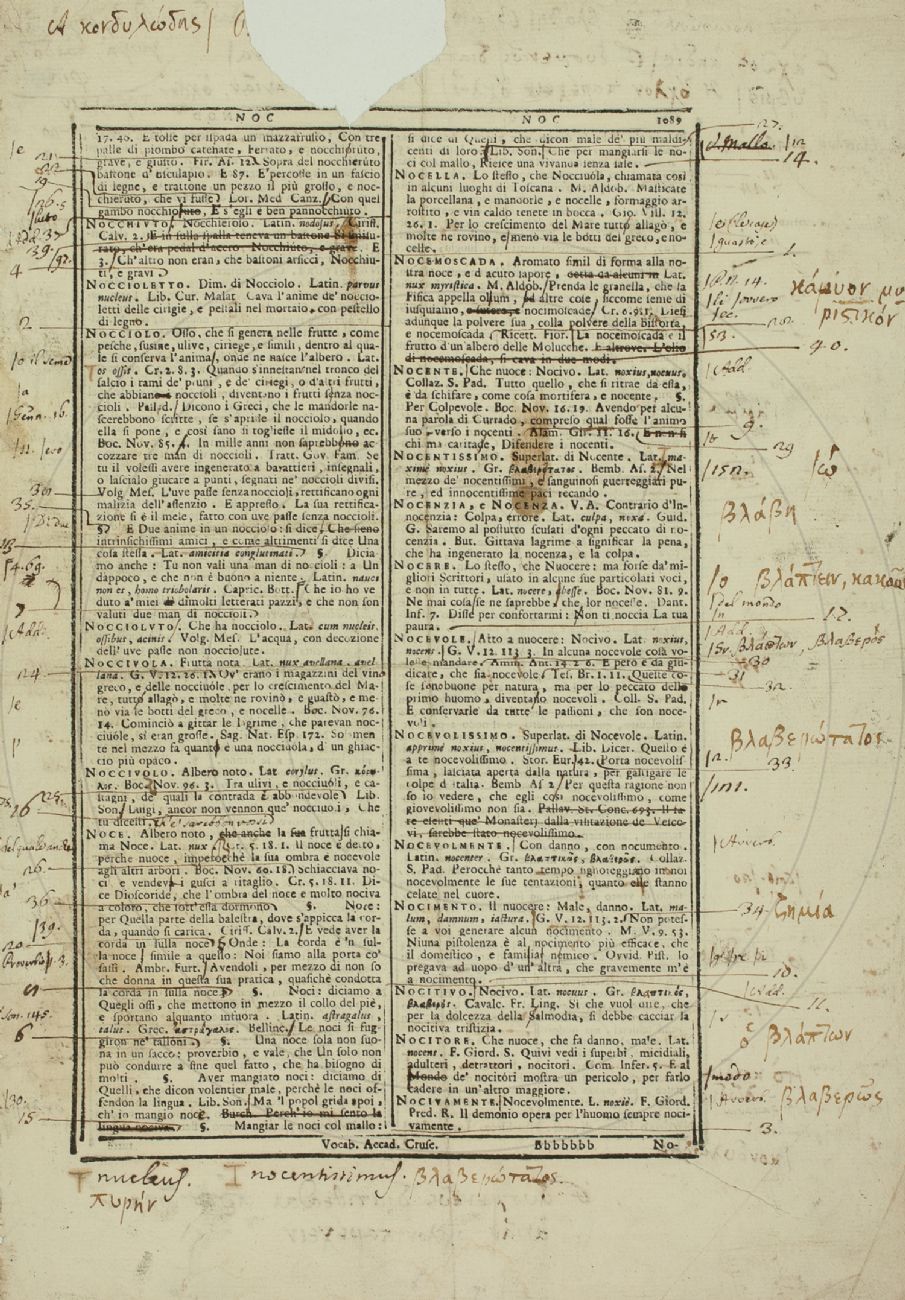 A κονδυλώδης
NOC NOC 1089
17. 40. E tolse per ispada un mazzafrusto, Con tre
palle di piombo catenate, Ferrato, e nocchieruto,
grave, e giusto. Fir. As. 12. Sopra del nocchieruto
bastone d'Esculapio. E 87. E'percosse in un fascio
di legne, e trattone un pezzo il più grosso, e noc-
chieruto, che vi fusse. Lor. Med Canz. Con quel
gambo nocchioruto, E s'egli è ben pannocchiuto.
NOCCHIUTO. Nocchierolo. Latin. nodosus. Ciriff.
Calv. 2. E in sulla spalla teneva un bastone Smisu-
rato, ch'era pedal d'acero Nocchiuto, e grave. E
3. Ch'altro non eran, che bastoni arsicci, Nocchiu-
ti, e gravi
NOCCIOLETTO. Dim. di Nocciolo. Latin. parvus
nucleus. Lib. Cur. Malat. Cava l'anime de' noccio-
letti delle cirigie, e pestali nel mortaio, con pestello
di legno.
NOCCIOLO. Osso, che si genera nelle frutte, come
pesche, susine, ulive, ciriege, e simili, dentro al qua-
le si conserva l'anima, onde ne nasce l'albero. Lat.
os ossis. Cr. 2. 8. 3. Quando s'innestan nel tronco del
salcio i rami de' pruni, e de' ciriegi, o d'altri frutti,
che abbiano noccioli, diventano i frutti senza noc-
cioli. Pallad. Dicono i Greci, che le mandorle na-
scerebbono scritte, se s'aprile il nocciolo, quando
ella si pone, e così sano si togliesse il midollo, ec.
Boc. Nov. 85. In mille anni non saprebbono ac-
cozzare tre man di noccioli. Tratt. Gov. Fam. Se
tu il volessi avere ingenerato a barattieri, insegnali,
o lascialo giucare a punti, segnati ne' noccioli divisi.
Volg Mes. L'uve passe senza noccioli, rettificano ogni
malizia dell'assenzio. E appresso. La sua rettifica-
zione si è il mele, fatto con uve passe senza noccioli.
§ E Due anime in un nocciolo: si dice, Che sono
intrinsichissimi amici, e come altrimenti si dice Una
cosa stessa. Lat. amicitia conglutinati. §. Dicia-
mo anche: Tu non vali una man di noccioli: a Un
dappoco, e che non è buono a niente. Latin. nauci
non es, homo triobolaris. Capric. Bott. Che io ho ve
duto a'miei dì dimolti letterati pazzi, e che non son
valuti due man di noccioli.
NOCCIOLUTO. Che ha nocciolo. Lat. cum nucleis.
ossibus, acinis. Volg. Mes. L'acqua, con decozione
dell'uve passe non nocciolute.
NOCCIVOLA. Frutta nota. Lat. nux avellana. avel-
lana. G. V. 12. 26. 1. Ov' erano i magazzini del vino
greco, e delle nocciuole, per lo crescimento del Ma-
re, tutto allagò, e molte ne rovinò, e guastò, e me-
nò via le botti del greco, e nocelle. Boc. Nov. 76.
14. Cominciò a gittar le lagrime, che parevan noc-
ciuole, sì eran grosse. Sag. Nat. Esp. 172. Solamen
te nel mezzo fa quanto è una nocciuola, d'un ghiac-
cio più opaco.
NOCCIVOLO. Albero noto. Lat corylus. Gr. κόρυ-
λος. Boc. Nov. 96. 3. Tra ulivi, e nocciuoli, e ca-
stagni, de' quali la contrada è abbondevole. Lib.
Son. Luigi, ancor non vennon que' nocciuoli, Che
tu dicesti
NOCE. Albero noto, che anche la sua frutta si chia-
ma Noce. Lat. nux Cr. 5. 18. 1. Il noce è detto,
perche nuoce, imperocchè la sua ombra è nocevole
agli altri arbori. Boc. Nov. 60. 18. Schiacciava noci
ci e vendeva i gusci a ritaglio. Cr. 5. 18. 11. Di-
ce Dioscoride, che l'ombra del noce è molto nociva
a coloro, che sott'essa dormono. §. Noce:
per Quella parte della balestra, dove s'appicca la cor-
da, quando si carica. Ciriff. Calv. 2. E vede aver la
corda in sulla noce. §. Onde: La corda è 'n sul-
la noce: simile a quello: Noi siamo alla porta co'
sassi. Ambr. Furt. Avendoli, per mezzo di non so
che donna in questa sua pratica, quasichè condotta
la corda in sulla noce. §. Noci: diciamo a
Quegli ossi, che mettono in mezzo il collo del piè,
e sportano alquanto infuora. Latin. astragalus,
talus. Grec. ἀστράγαλος. Bellinc. Le noci si fug-
giron ne' talloni. §. Una noce sola non suo-
na in un sacco: proverbio, e vale, che Un solo non
può condurre a fine quel fatto, che ha bisogno di
molti. §. Aver mangiato noci: diciamo di
Quelli, che dicon volentier male, perchè le noci of-
fendon la lingua. Lib. Son. Ma 'l popol grida spoi,
ch' io mangio noce. Burch. Perch' io mi sento la
lingua nociva. §. Mangiar le noci col mallo:
si dice di Quegli, che dicon male de' più maldi-
centi di loro. Lib. Son. Che per mangiarsi le no-
ci col mallo, Riesce una vivanda senza sale.
NOCELLA. Lo stesso, che Nocciuola, chiamata così
in alcuni luoghi di Toscana. M. Aldob. Masticate
la porcellana, e mandorle, e nocelle, e formaggio ar-
rostito, e vin caldo tenete in bocca. Gio. Vill. 12.
26. 1. Per lo crescimento del Mare tutto allagò, e
molte ne rovinò, e menò via le botti del greco, e no-
celle.
NOCEMOSCADA. Aromato simil di forma alla no-
stra noce, e d'acuto sapore, detta da alcuni in Lat.
nux myristica. M. Aldob. Prenda le granella, che la
Fisica appella ollum, ed altre cose, siccome seme di
iusquiamo, e sutera, e nocimoscade. Cr. 6. 91. Diesi
adunque la polvere sua, colla polvere della bistorta,
e nocemoscada. Ricett. Fior. La nocemoscada è il
frutto d'un albero delle Molucche. E altrove. L'olio
di nocemoscada, si cava in due modi.
NOCENTE. Che nuoce: Nocivo. Lat. noxius, nocuus.
Collaz. S. Pad. Tutto quello, che si ritrae da essa,
è da schifare, come cosa mortifera, e nocente. §.
Per Colpevole. Boc. Nov. 16. 19. Avendo per alcu-
na parola di Currado, compreso qual fosse l'animo
suo verso i nocenti. Alam. Gir. 11. 16. E non si
chi ma caritade, Difendere i nocenti.
NOCENTISSIMO. Superlat. di Nocente. Lat. ma-
ximè noxius. Gr. βλαβερώτατος. Bemb. As. 2. Nel
mezzo de' nocentissimi, e sanguinosi guerreggiari pu-
re, ed innocentissime paci recando.
NOCENZIA, e NOCENZA. V. A. Contrario d'In-
nocenzia: Colpa, errore. Lat. culpa, noxa. Guid.
G. Saremo al postutto scusati d'ogni peccato di no-
cenzia. But. Gittava lagrime a significar la pena,
che ha ingenerato la nocenza, e la colpa.
NOCERE. Lo stesso, che Nuocere: ma forse da'mi-
gliori Scrittori, usato in alcune sue particolari voci,
e non in tutte. Lat. nocere, obesse. Boc. Nov. 81. 9.
Ne mai cosa se ne saprebbe, che lor nocesse. Dant.
Inf. 7. Disse per confortarmi: Non ti noccia La tua
paura.
NOCEVOLE. Atto a nuocere: Nocivo. Lat. noxius,
nocens. G. V. 12. 113. 3. In alcuna nocevole cosa vo-
le mandare. Amm. Ant. 14. 2. 6. E però è da giu-
dicare, che sia nocevole. Tes. Br. 1. 11. Queste co-
se sono buone per natura, ma per lo peccato dello
primo huomo, diventaro nocevoli. Coll. S. Pad.
E conservarle da tutte le passioni, che son noce-
voli.
NOCEVOLISSIMO. Superlat. di Nocevole. Latin.
apprimè noxius, nocentissimus. Lib. Dicer. Quello è
a te nocevolissimo. Stor. Eur. 42. Porta nocevolif-
sima, lasciata aperta dalla natura, per gastigare le
colpe d'Italia. Bemb As 2. Per questa ragione non
so io vedere, che egli così nocevolissimo, come
giovevolissimo non sia. Pallav. St. Conc. 693. Il ta-
re esenti que' Monasteri dalla visitazione de' Vesco-
vi, sarebbe stato nocevolissimo.
NOCEVOLMENTE. Con danno, con nocumento.
Latin. nocenter. Gr. βλαπτικῶς, βλαβερῶς. Collaz.
S. Pad. Perocchè tanto tempo signoreggiano in noi
nocevolmente le sue tentazioni, quanto elle stanno
celate nel cuore.
NOCIMENTO. Il nuocere: Male, danno. Lat. ma-
lum, damnum, iactura. G. V. 12. 113. 2. Non potes-
se a voi generare alcun nocimento. M. V. 9. 53.
Niuna pistolenza è al nocimento più efficace, che
il domestico, e familiar nemico. Ovvid. Pist. Io
pregava ad uopo d'un'altra, che gravemente m'è
a nocimento.
NOCITIVO. Nocivo. Lat. nocuus. Gr. βλαπτικός,
βλαβερός. Cavalc. Fr. Ling. Sì che vuol dire, che
per la dolcezza della Salmodia, si debbe cacciar la
nocitiva tristizia.
NOCITORE. Che nuoce, che fa danno, male. Lat.
nocens. F. Giord. S. Quivi vedi i superbi micidiali,
adulteri, detrattori, nocitori. Com. Infer. 5. E al
Mondo de' nocitori mostra un pericolo, per farlo
cadere in un'altro maggiore.
NOCIVAMENTE. Nocevolmente. L. noxiè. F. Giord.
Pred. R. Il demonio opera per l'huomo sempre noci-
vamente.
Vocab. Accad. Cruse. Bbbbbbb No-
κάρυον μυ
ριστικόν
βλάβη
βλάπτειν, κακοῦν
del mondo
βλάπτων, βλαβερός
βλαβερώτατος
ζημία
ὁ βλάπτων
βλαβερῶς
nucleus. Inocentissimus. βλαβερώτατος.
πυρήν